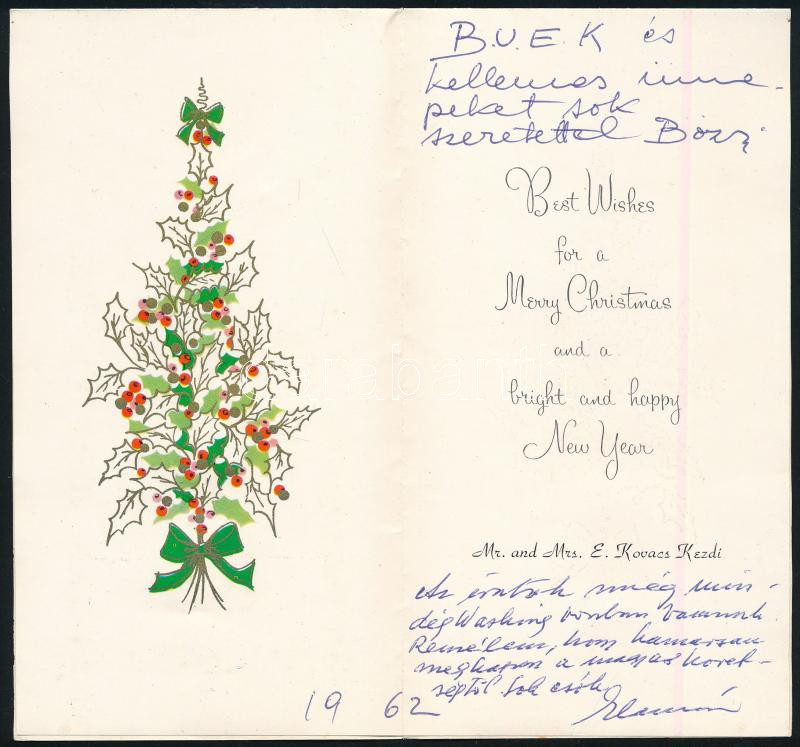 B.U.E.K és
kellemes ünne-
peket sok
szeretettel Bözsi
Best Wishes
for a
Merry Christmas
and a
bright and happy
New Year
Mr. and Mrs. E. Kovacs Kezdi
Az iratok még min-
dég Washingtonban vannak.
Remélem, hogy hamarosan
megkapom a magyar követ-
ségtől. Sok csók
1962